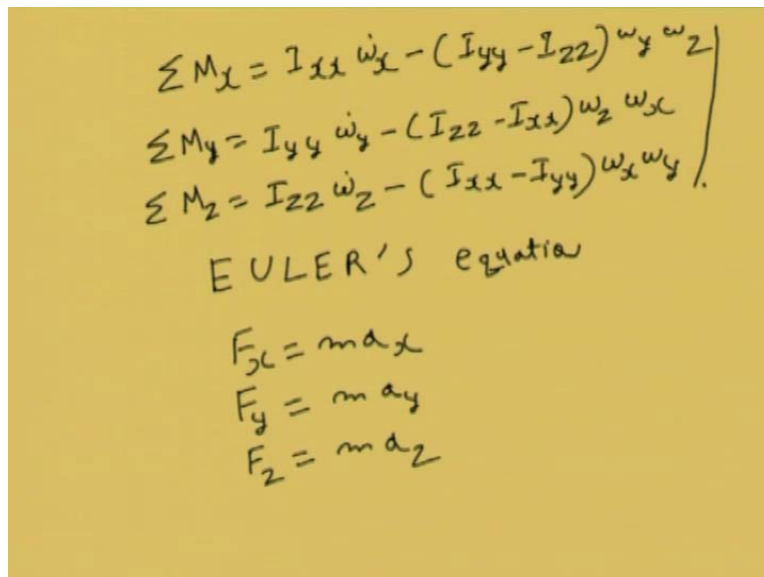 ΣMx = Ixx ω̇x - (Iyy - Izz) ωy ωz
ΣMy = Iyy ω̇y - (Izz - Ixx) ωz ωx
ΣMz = Izz ω̇z - (Ixx - Iyy) ωx ωy
EULER'S equatio
Fx = max
Fy = may
Fz = maz